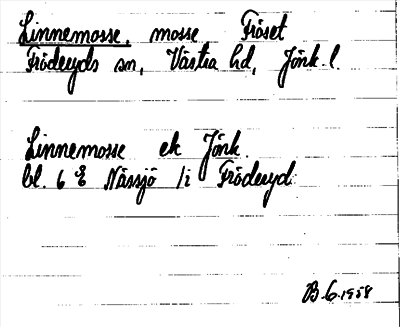 Linnemosse, mosse Fröset
Fröderyds sn, Västra hd, Jönk. l.
Linnemosse ek Jönk.
bl. 6 E Nässjö /i Fröderyd
B.G. 1958